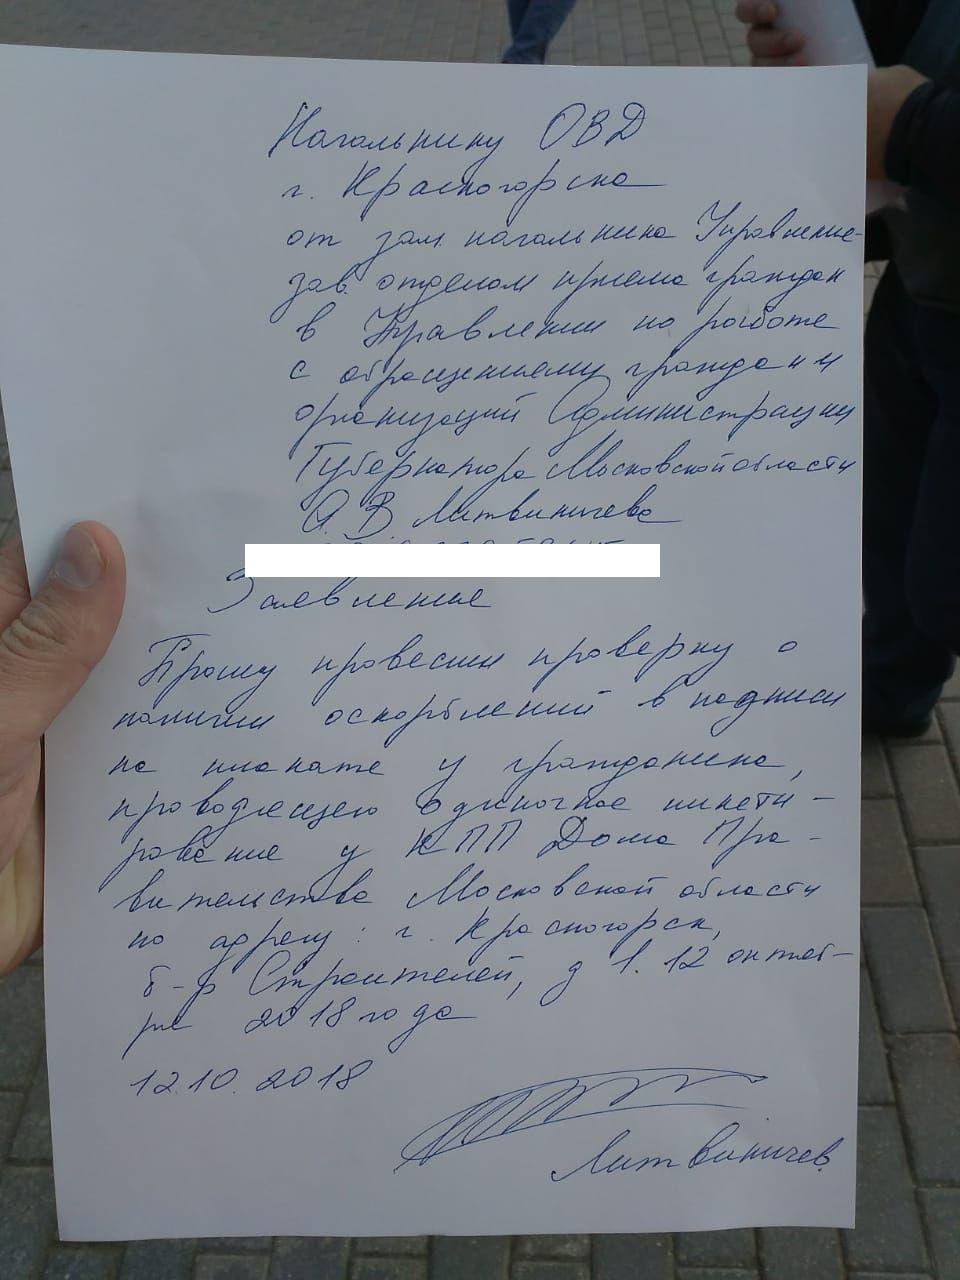 Начальнику ОВД
г. Красногорска
от зам. начальника Управления-
зав. отделом приема граждан
в Управлении по работе
с обращениями граждан и
организаций Администрации
Губернатора Московской области
А. В. Литвиничева
Заявление
Прошу провести проверку о
наличии оскорблений в подписи
на плакате у гражданина,
проводящего одиночное пикети-
рование у КПП Дома Пра-
вительства Московской области
по адресу: г. Красногорск,
б-р Строителей, д 1. 12 октяб-
ря 2018 года
12.10.2018
Литвиничев